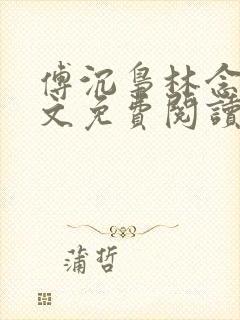 傅沉梟林念
文免費閱讀
蒲哲